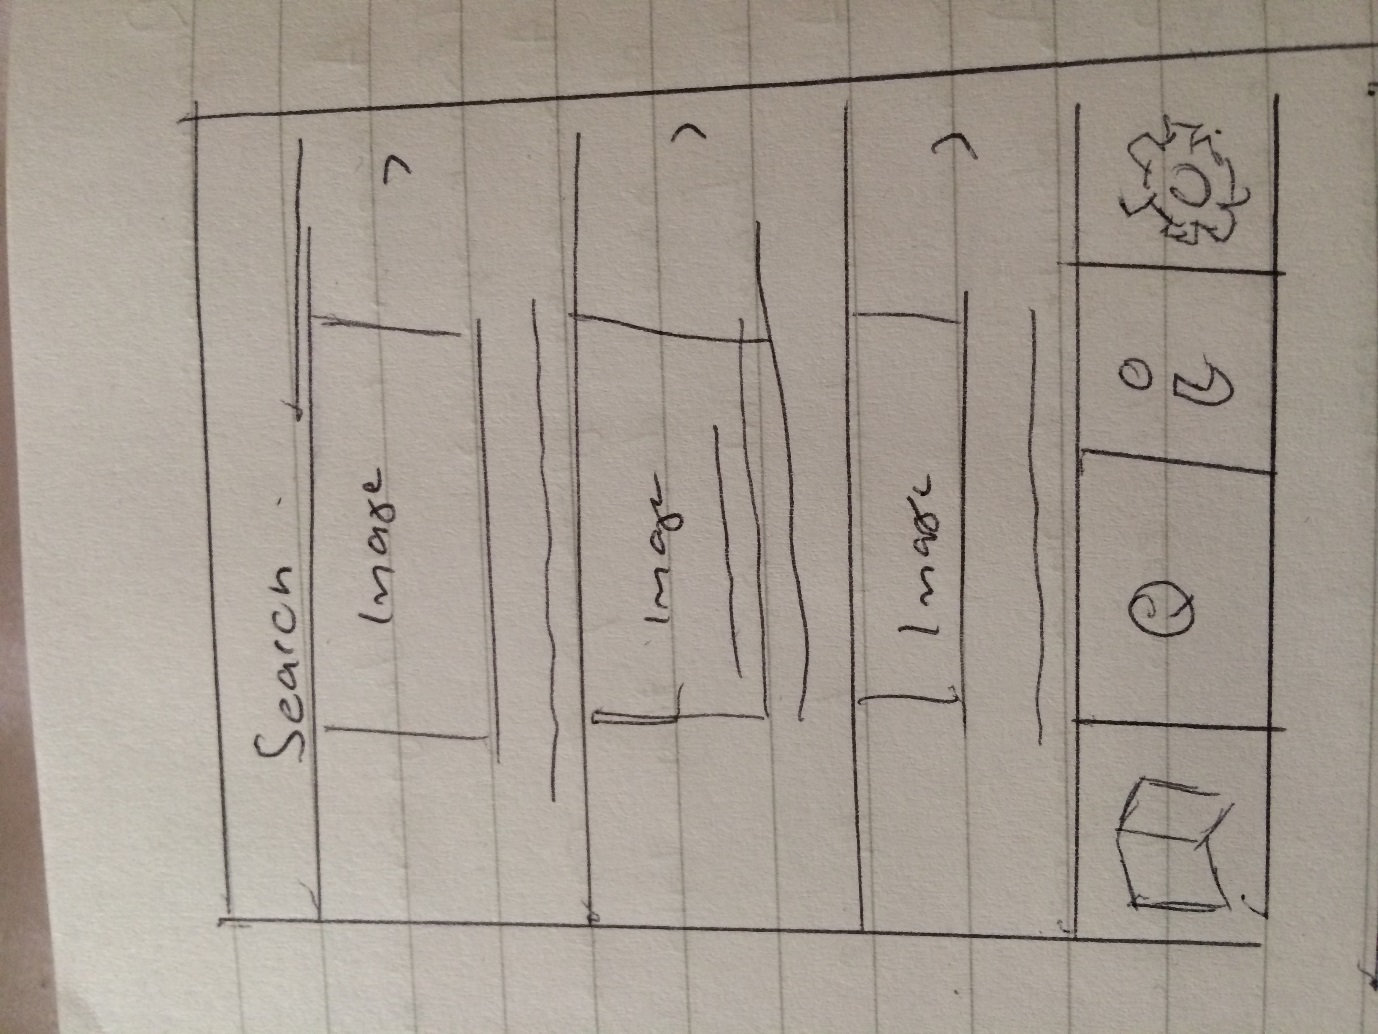 Search
Image
Image
Image